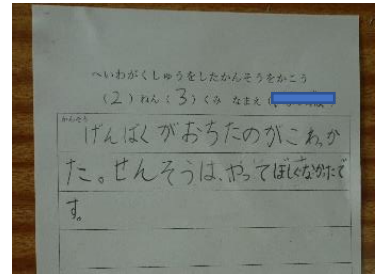 へいわがくしゅうをしたかんそうをかこう
(2)ねん(3)くみ なまえ(
かんそう
げんばくがおちたのがこわっか
た。せんそうは、やってほしくなかたで
す。